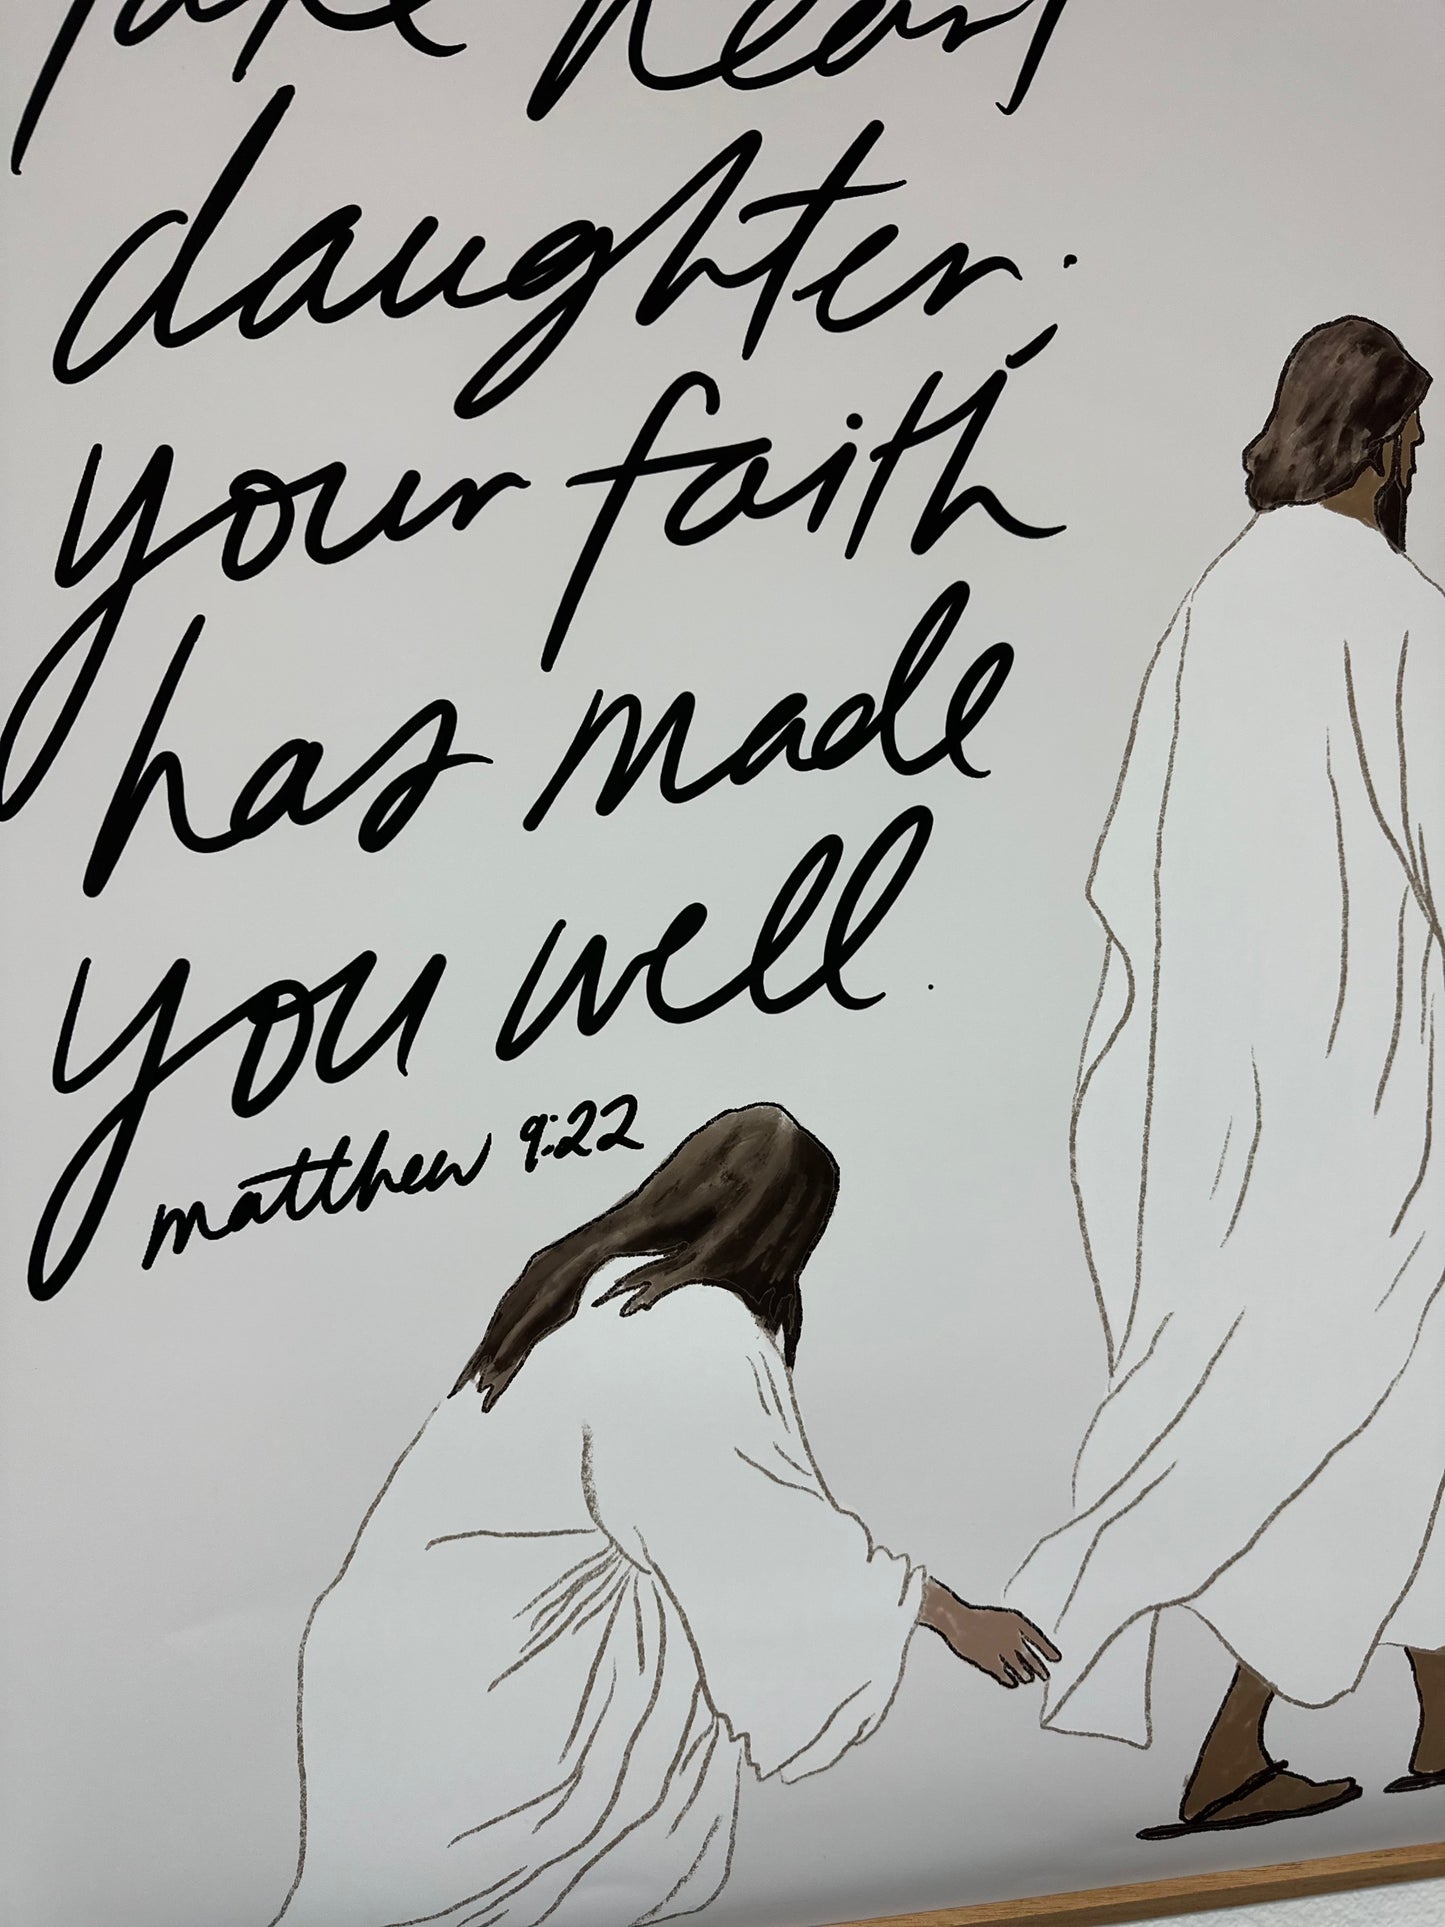 take heart
daughter;
your faith
has made
you well.
matthew 9:22